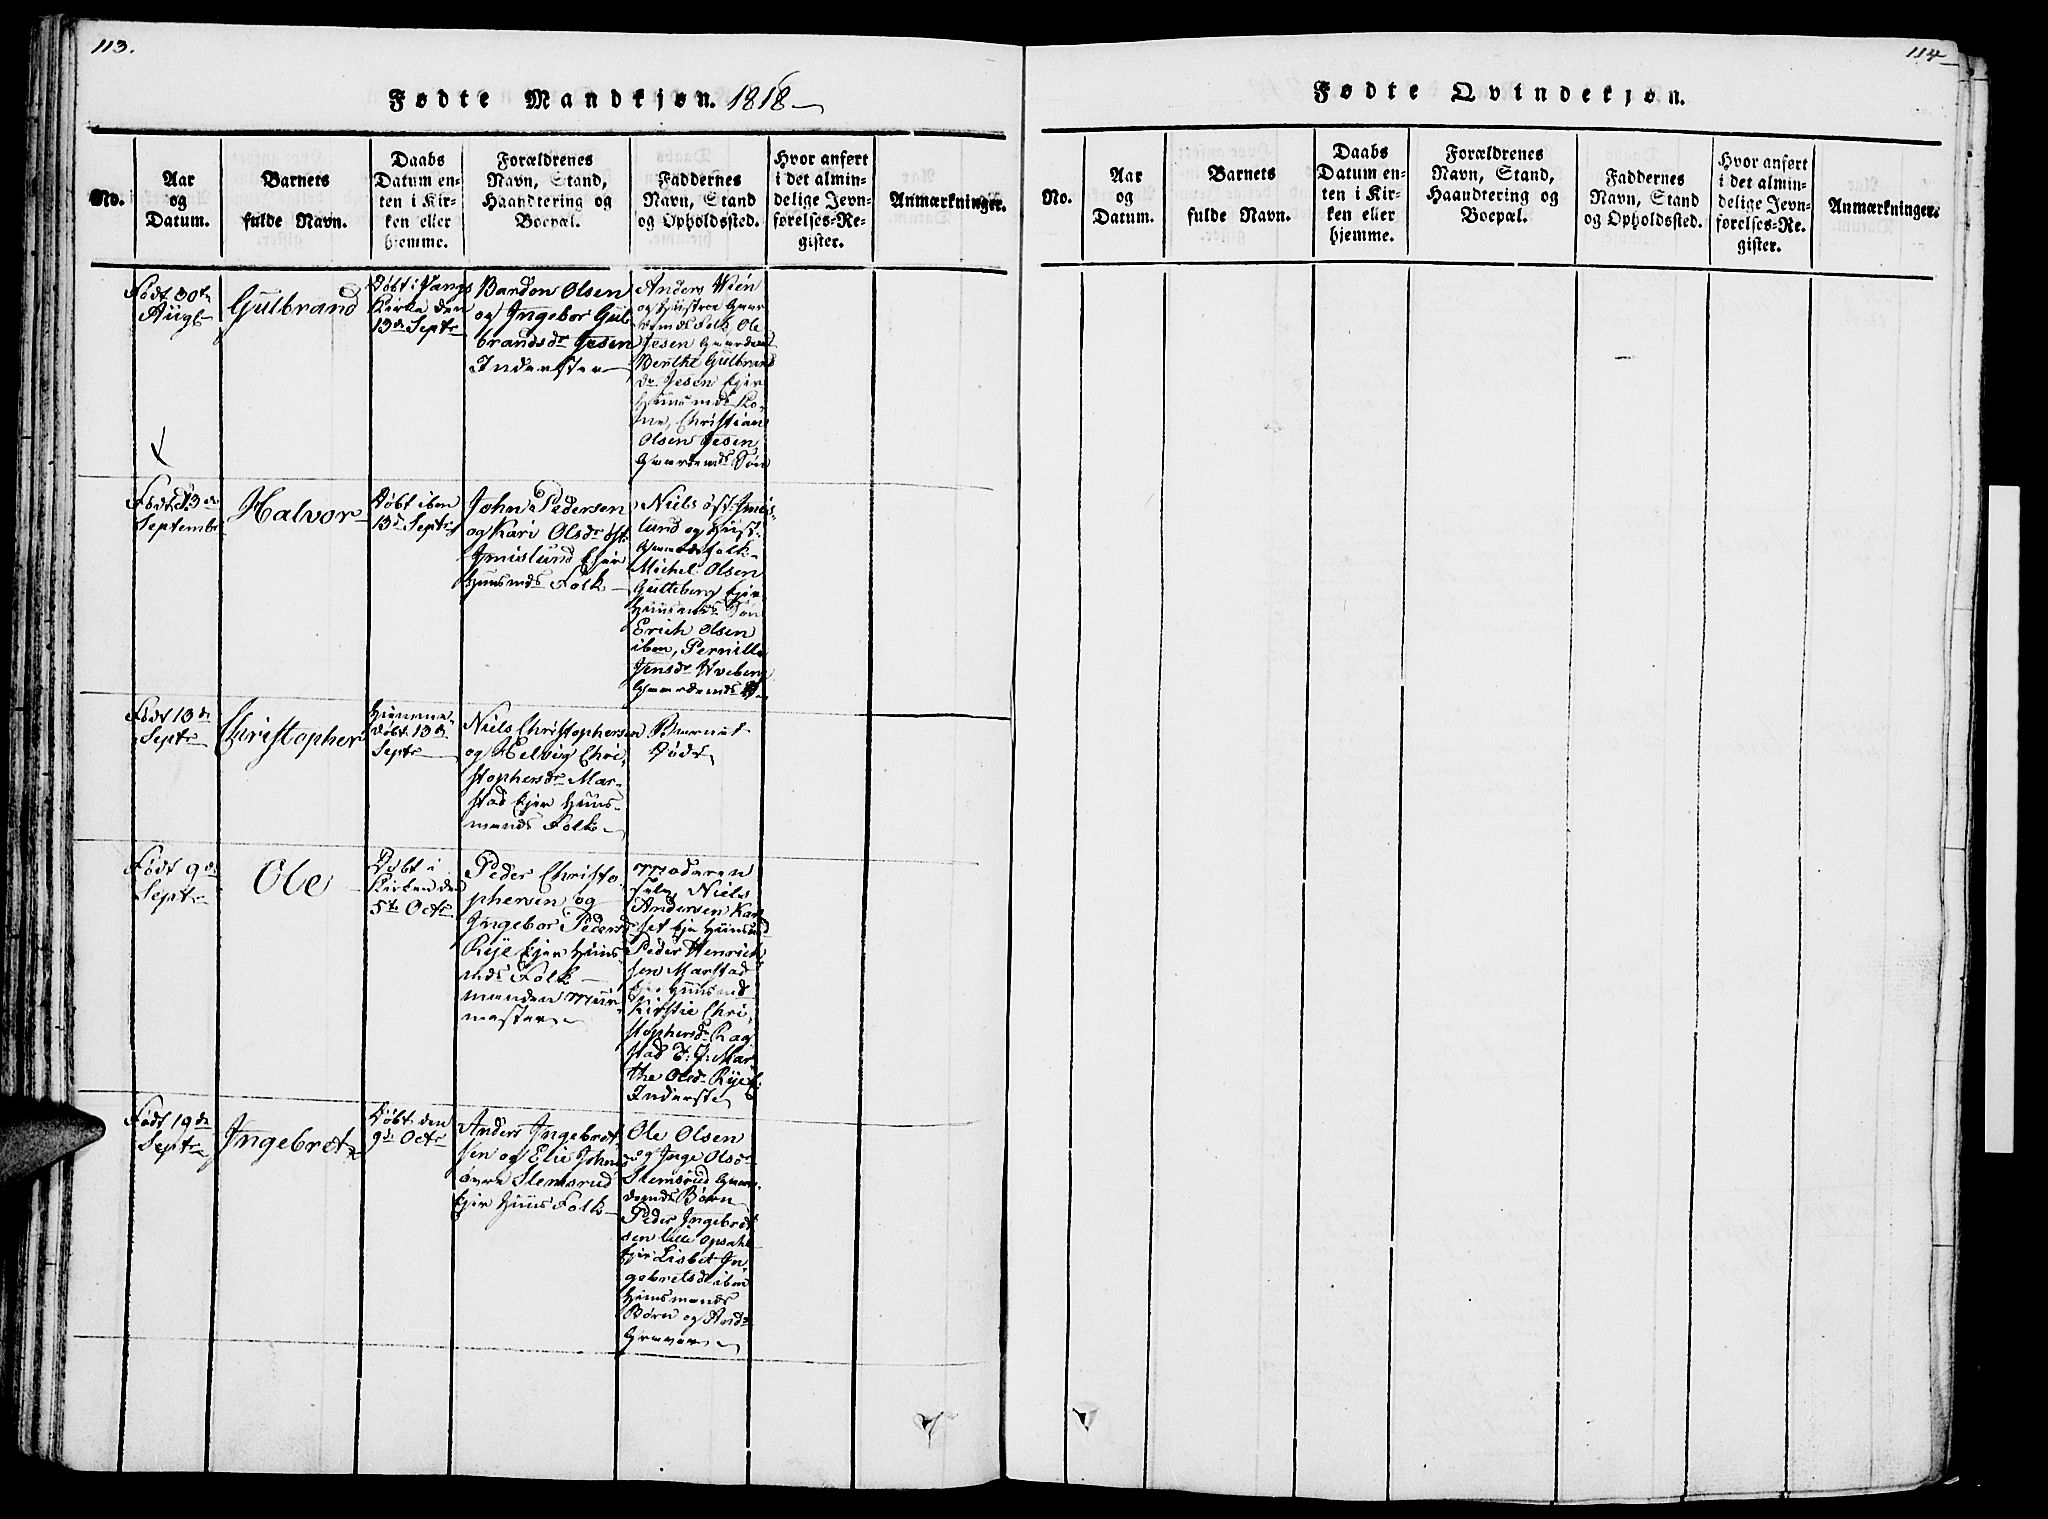 113.
Fødte Mandkjøn. 1818
No.
Aar
og
Datum.
Barnets
fulde Navn.
Daabs
Datum en-
ten i Kir-
ken eller
hjemme.
Forældrenes
Navn, Stand,
Haandtering og
Boepæl.
Faddernes
Navn, Stand
og Opholdssted.
Hvor anført
i det almin-
delige Jevn-
førelses-Re-
gister.
Anmærkninger.
Født 30te
Augs
Gulbrand
Døbt i Vangs
Kirke den
13de Septr
Bardon Olsen
og Ingebor Gul
brandsdr Jesen
Inderster
Anders Wien
og Hustroe Gaar
mds Folk, Ole
Jesen Gaardmd
Berthe Gulbrands
dr Jesen Ejer
Huusmds Ko-
ne, Christian
Olsen Jesen
Gaardmds Søn
Født 13de
Septembr
Halvor
Døbt ibm
13de Septr
John Pedersen
og Kari Olsdr øst
Imislund Ejer
Huusmds Folk
Niels øst: Imis-
lund og Hust:
Gaardsfolk
Michel Olsen
Gutteberg Ejer
Huusmds Søn
Erich Olsen
ibm, Pernille
Jensdr Hveberg
Gaardmds
Født 13de
Septr
Christopher
Hjemme
døbt 13de
Septr
Niels Christophersen
og Helvig Chri
stophersdr Mar-
stad Ejer Huus-
mands Folk
Barnet
Død
Født 9de
Septr
Ole
Døbt i
Kirken den
5te Octr
Peder Christo
phersen og
Ingebor Peders
Rye Ejer Huus-
mds Folk
manden Muur-
mester
Moderen
selv, Niels
Andersen Kar
set Eje Huusmd
Peder Henrich
sen Marstad
Eje Huusmd
Kirstie Chri
stophersdr Rag
stad E: J: Mar
the Olsdr Rye E:
Inderste
Født 19de
Septr
Ingebret
Døbt den
9de Octr
Anders Ingebret
sen og Elie Johns
øvre Slemsrud
Ejer Huus Folk
Ole Olsen
og Inge Olsdr
Slemsrud Gaar-
dmds Børn
Peder Ingebret
sen lille Opsahl
Ejer Lisbet In
gebretsdr ibm
Huusmands
Børn og Andr
Graver
114
Fødte Qvindekjøn.
No.
Aar
og
Datum.
Barnets
fulde Navn.
Daabs
Datum en-
ten i Kir-
ken eller
hjemme.
Forældrenes
Navn, Stand,
Haandtering og
Boepæl.
Faddernes
Navn, Stand
og Opholdssted.
Hvor anført
i det almin-
delige Jevn-
førelses-Re-
gister.
Anmærkninger.